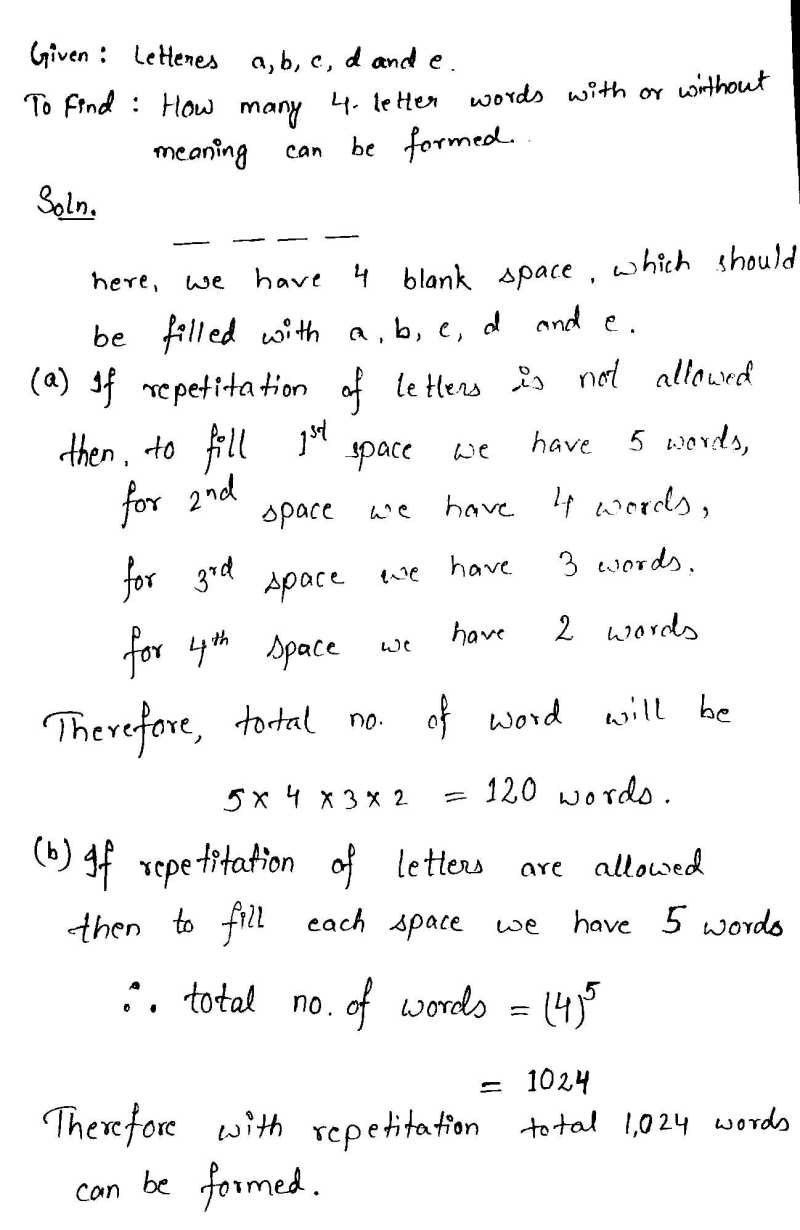 Given : Letteres a, b, c, d and e.
To Find : How many 4-letter words with or without
meaning can be formed.
Soln.
here, we have 4 blank space, which should
be filled with a, b, c, d and e.
(a) If repetitation of letters is not allowed
then, to fill 1st space we have 5 words,
for 2nd space we have 4 words,
for 3rd space we have 3 words.
for 4th space we have 2 words
Therefore, total no. of word will be
5 x 4 x 3 x 2 = 120 words.
(b) If repetitation of letters are allowed
then to fill each space we have 5 words
∴ total no. of words = (4)^5
= 1024
Therefore with repetitation total 1,024 words
can be formed.